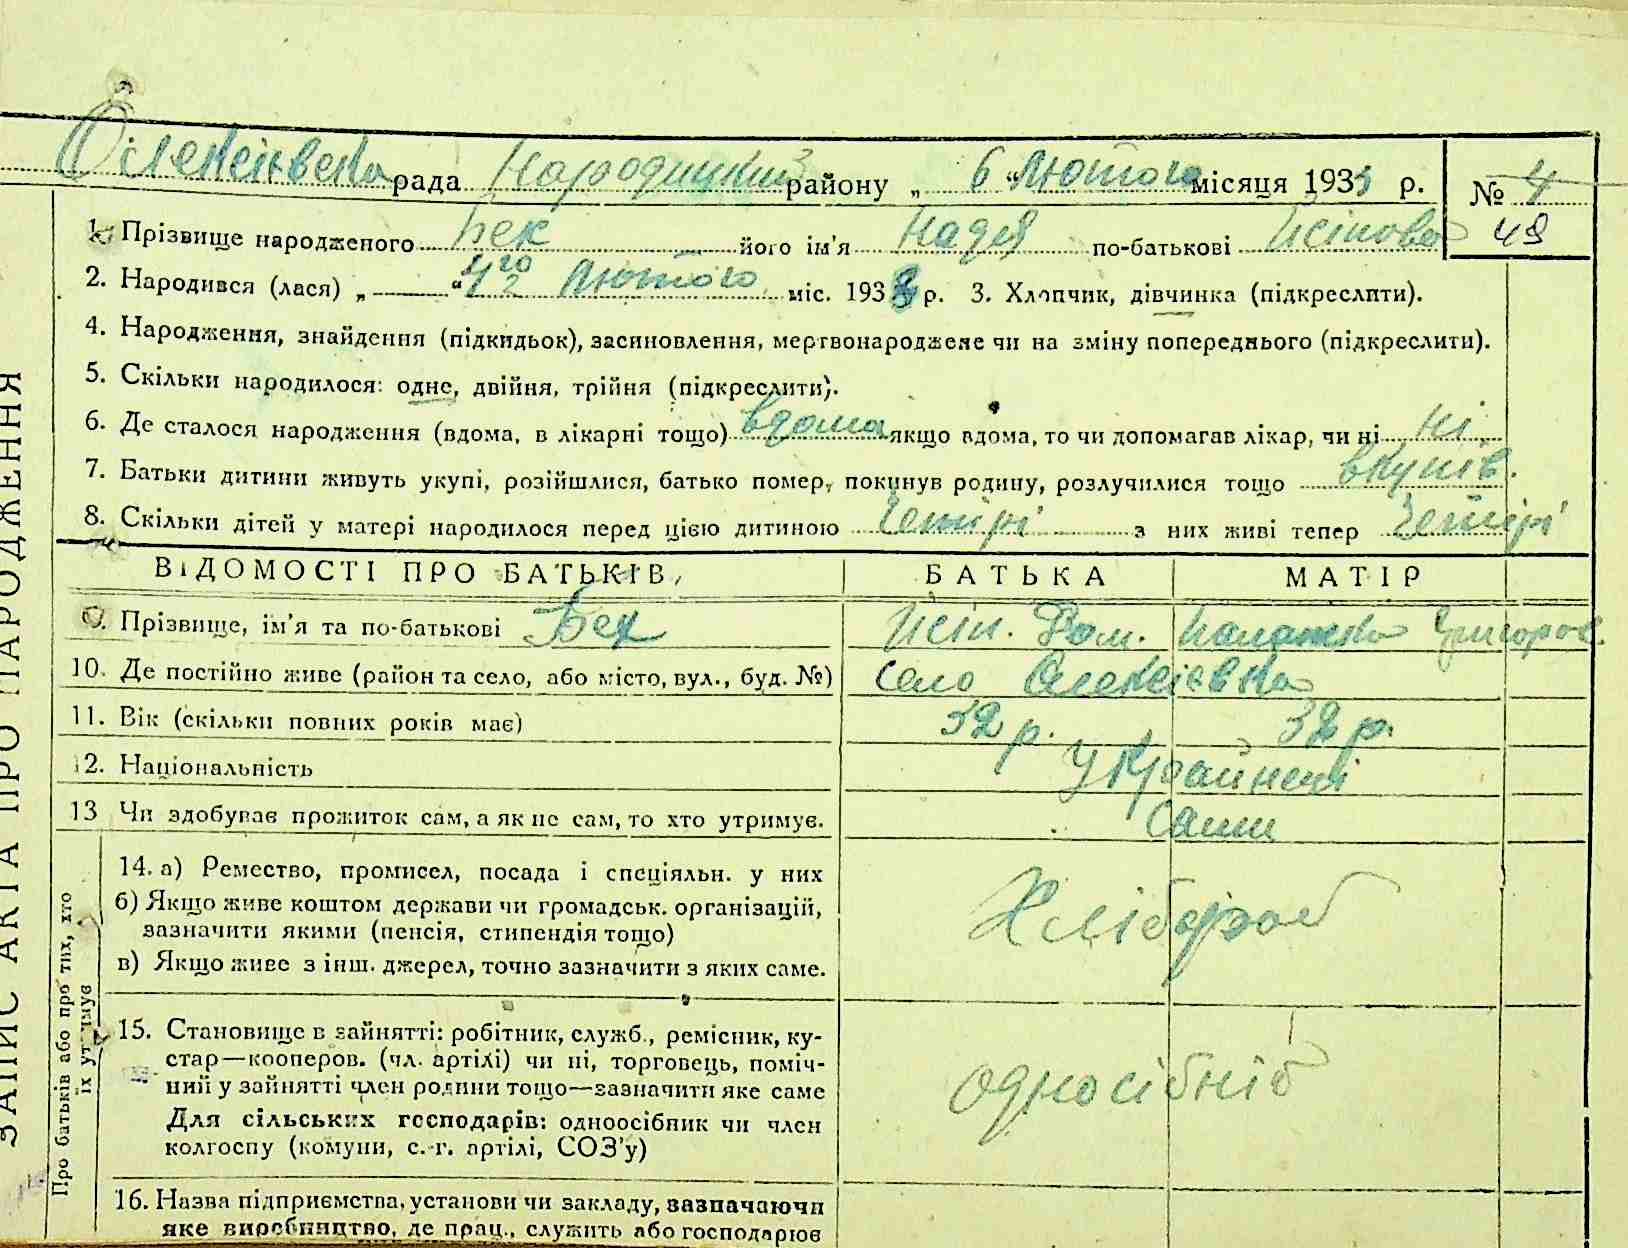 Олексієвска рада Народицкий району „ 6 “ Лютого місяця 1933 р. № 4
48
1. Прізвище народженого Бек його ім'я Надія по-батькові Йсіпова
2. Народився (лася) „ “ 4го 2 Лютого міс. 1933 р. 3. Хлопчик, дівчинка (підкреслити).
4. Народження, знайдення (підкидьок), засиновлення, мертвонароджене чи на зміну попереднього (підкреслити).
5. Скільки народилося: одне, двійня, трійня (підкреслити).
6. Де сталося народження (вдома, в лікарні тощо) вдома якщо вдома, то чи допомагав лікар, чи ні ні
7. Батьки дитини живуть укупі, розійшлися, батько помер, покинув родину, розлучилися тощо вкупів.
8. Скільки дітей у матері народилося перед цією дитиною Четирі з них живі тепер Четирі
ВІДОМОСТІ ПРО БАТЬКІВ БАТЬКА МАТІР
9. Прізвище, ім'я та по-батькові Бек Йсіп. Ром. Григоров.
10. Де постійно живе (район та село, або місто, вул., буд. №) Село Олексієвка
11. Вік (скільки повних років має) 32 р. 32 р.
12. Національність Украйнеці
13 Чи здобуває прожиток сам, а як не сам, то хто утримує. Сами
14. а) Ремество, промисел, посада і спеціяльн. у них Хлібороб
б) Якщо живе коштом держави чи громадськ. організацій,
зазначити якими (пенсія, стипендія тощо)
в) Якщо живе з інш. джерел, точно зазначити з яких саме.
15. Становище в зайнятті: робітник, служб., ремісник, ку-
стар—кооперов. (чл. артілі) чи ні, торговець, поміч-
ний у зайнятті член родини тощо—зазначити яке саме
Для сільських господарів: одноосібник чи член
колгоспу (комуни, с.-г. артілі, СОЗ'у)
односібнів
16. Назва підприємства, установи чи закладу, зазначаючи
яке виробництво, де прац., служить або господарює
ЗАПИС АКТА ПРО НАРОДЖЕННЯ
Про батьків або про тих, хто
їх утримує